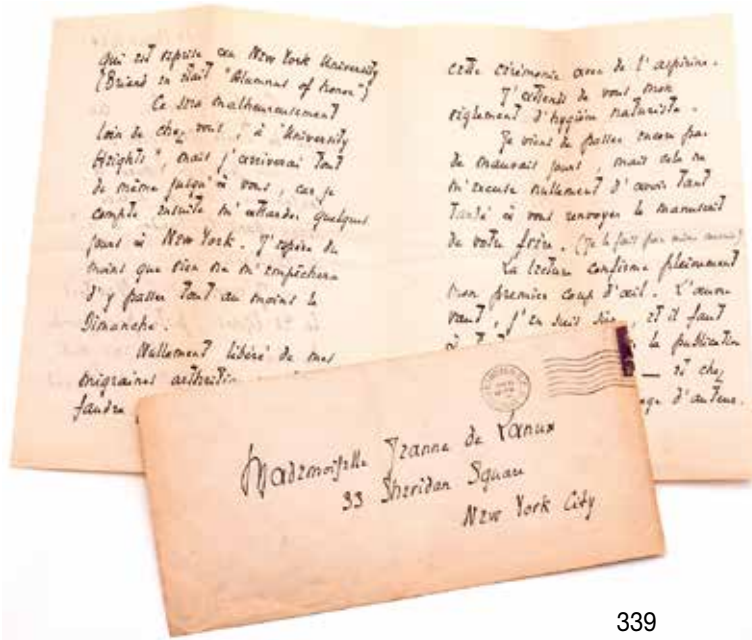 qui est reprise au New York University
(Briand en était "Alumnus of honor")
Ce sera malheureusement
loin de chez vous, à "University
Heights", mais j'arriverai tout
de même jusqu'à vous, car je
compte ensuite m'attarder quelques
jours à New York. J'espère du
moins que rien ne m'empêchera
d'y passer tout au moins le
Dimanche.
Nullement libéré de mes
migraines
faudra
cette cérémonie avec de l'aspirine.
J'attends de vous mon
règlement d'hygiène naturiste.
Je viens de passer encore pas
de mauvais jours, mais cela ne
m'excuse nullement d'avoir tant
tardé à vous renvoyer le manuscrit
de votre frère. (Je le fais par même courrier)
La lecture confirme pleinement
mon premier coup d'œil. L'œuvre
vaut, j'en suis sûr, et il faut
la publication
— et chez
d'auteur.
Mademoiselle Jeanne de Lanux
33 Sheridan Square
New York City
339